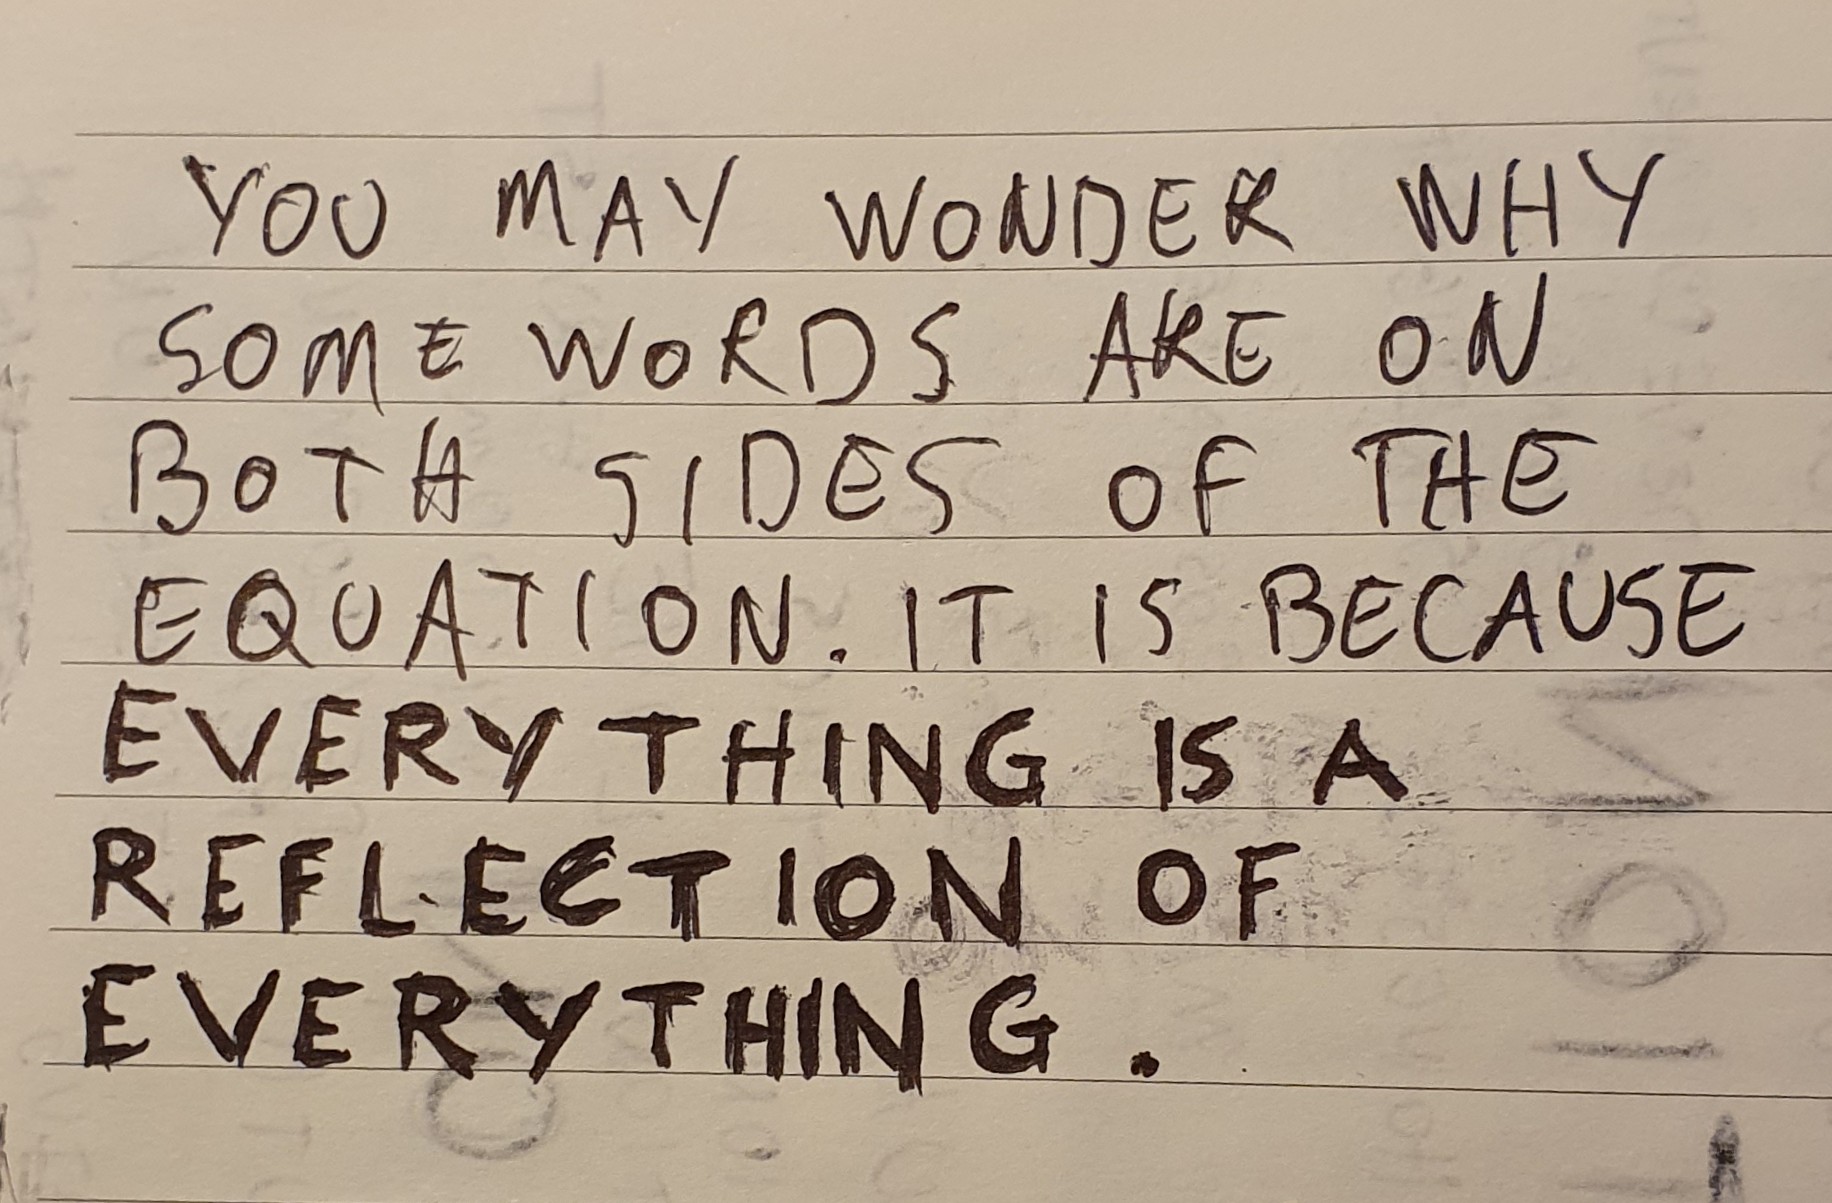 YOU MAY WONDER WHY
SOME WORDS ARE ON
BOTH SIDES OF THE
EQUATION. IT IS BECAUSE
EVERYTHING IS A
REFLECTION OF
EVERYTHING.